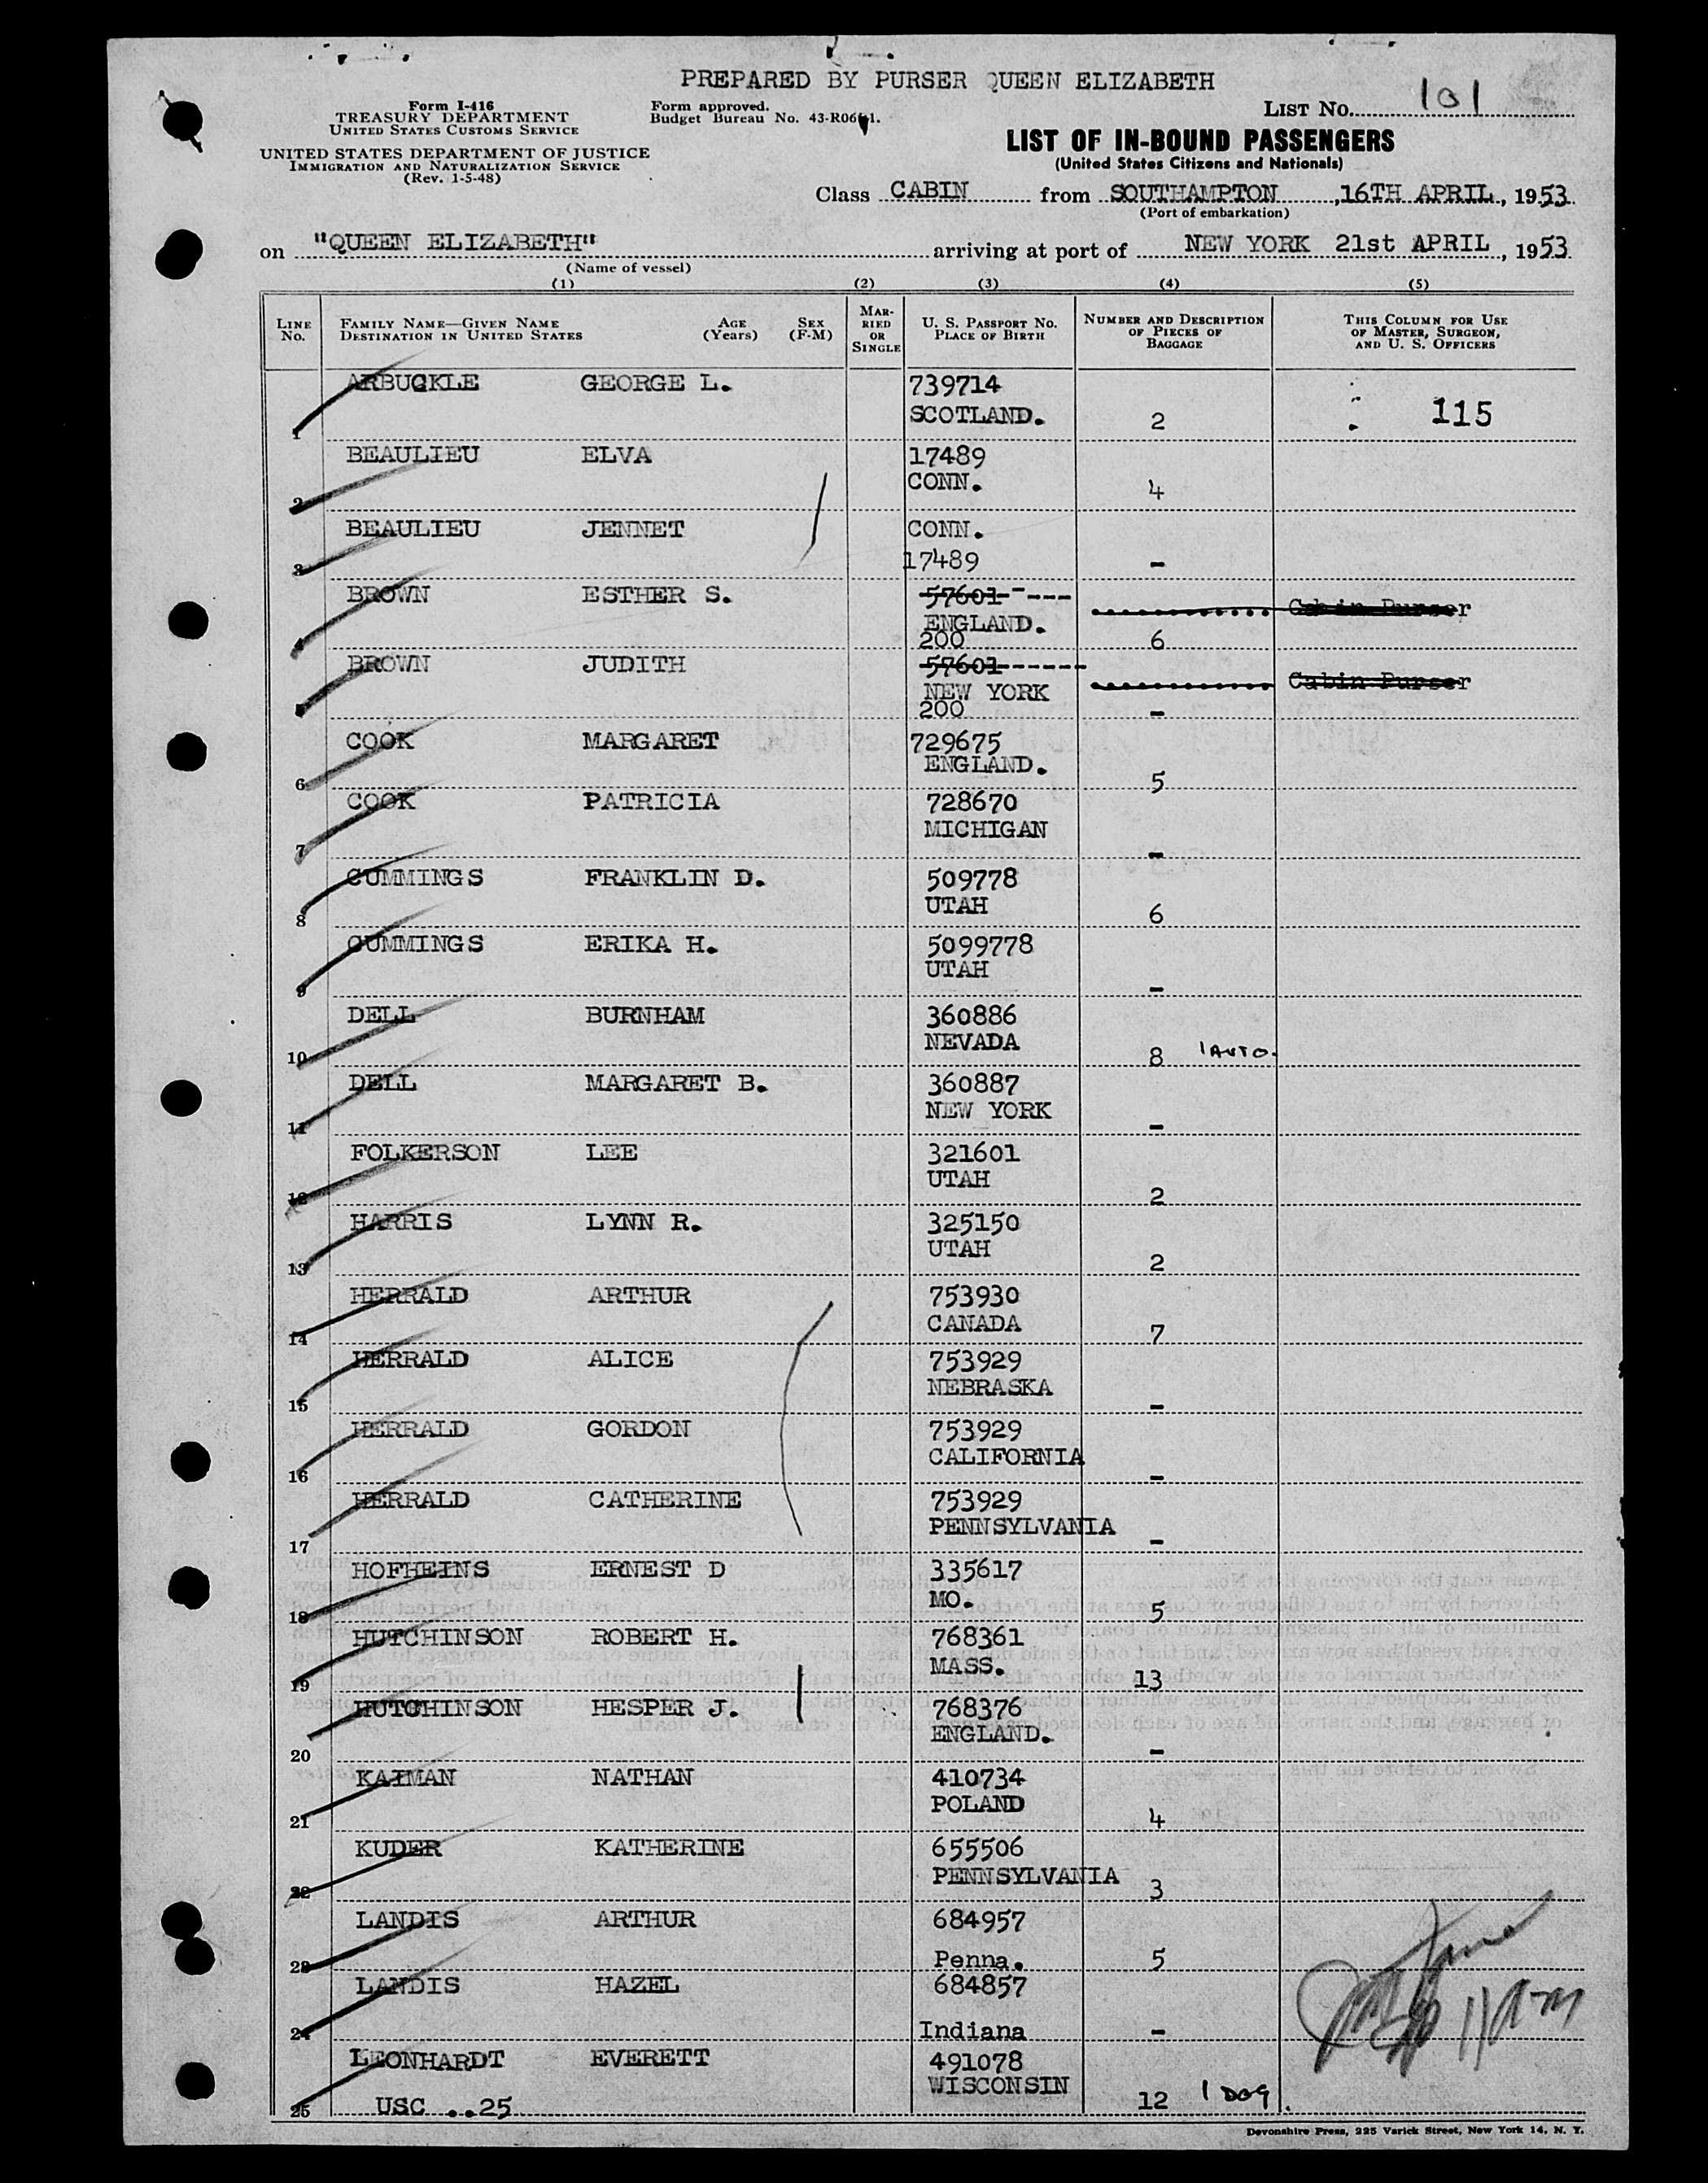 PREPARED BY PURSER QUEEN ELIZABETH
Form I-416
TREASURY DEPARTMENT
UNITED STATES CUSTOMS SERVICE
UNITED STATES DEPARTMENT OF JUSTICE
IMMIGRATION AND NATURALIZATION SERVICE
(Rev. 1-5-48)
Form approved.
Budget Bureau No.
LIST No. 101
LIST OF IN-BOUND PASSENGERS
(United States Citizens and Nationals)
Class CABIN from SOUTHAMPTON, 16TH APRIL, 1953
(Port of embarkation)
on "QUEEN ELIZABETH" arriving at port of NEW YORK 21st APRIL, 1953
(Name of vessel)
(1) (2) (3) (4) (5)
LINE No. FAMILY NAME—GIVEN NAME DESTINATION IN UNITED STATES AGE (Years) SEX (F-M) MARRIED OR SINGLE U. S. PASSPORT No. PLACE OF BIRTH NUMBER AND DESCRIPTION OF PIECES OF BAGGAGE THIS COLUMN FOR USE OF MASTER, SURGEON, AND U. S. OFFICERS
ARBUCKLE GEORGE L. 739714
1 SCOTLAND. 2 115
BEAULIEU ELVA 17489
2 CONN. 4
BEAULIEU JENNET CONN.
3 17489 -
BROWN ESTHER S. 57601 ---- Cabin Purser
ENGLAND.
4 200 6
BROWN JUDITH 57601 ------ Cabin Purser
NEW YORK
5 200 -
COOK MARGARET 729675
6 ENGLAND. 5
COOK PATRICIA 728670
7 MICHIGAN -
CUMMINGS FRANKLIN D. 509778
8 UTAH 6
CUMMINGS ERIKA H. 5099778
9 UTAH -
DELL BURNHAM 360886
10 NEVADA 8 1 AUTO.
DELL MARGARET B. 360887
11 NEW YORK -
FOLKERSON LEE 321601
12 UTAH 2
HARRIS LYNN R. 325150
13 UTAH 2
HERRALD ARTHUR 753930
14 CANADA 7
HERRALD ALICE 753929
15 NEBRASKA -
HERRALD GORDON 753929
16 CALIFORNIA -
HERRALD CATHERINE 753929
17 PENNSYLVANIA -
HOFHEINS ERNEST D 335617
18 MO. 5
HUTCHINSON ROBERT H. 768361
19 MASS. 13
HUTCHINSON HESPER J. 768376
20 ENGLAND. -
KAIMAN NATHAN 410734
21 POLAND 4
KUDER KATHERINE 655506
22 PENNSYLVANIA 3
LANDIS ARTHUR 684957
23 Penna. 5
LANDIS HAZEL 684857
24 Indiana -
LEONHARDT EVERETT 491078
WISCONSIN
25 USC ..25 12 1 DOG.
Devonshire Press, 225 Varick Street, New York 14, N. Y.